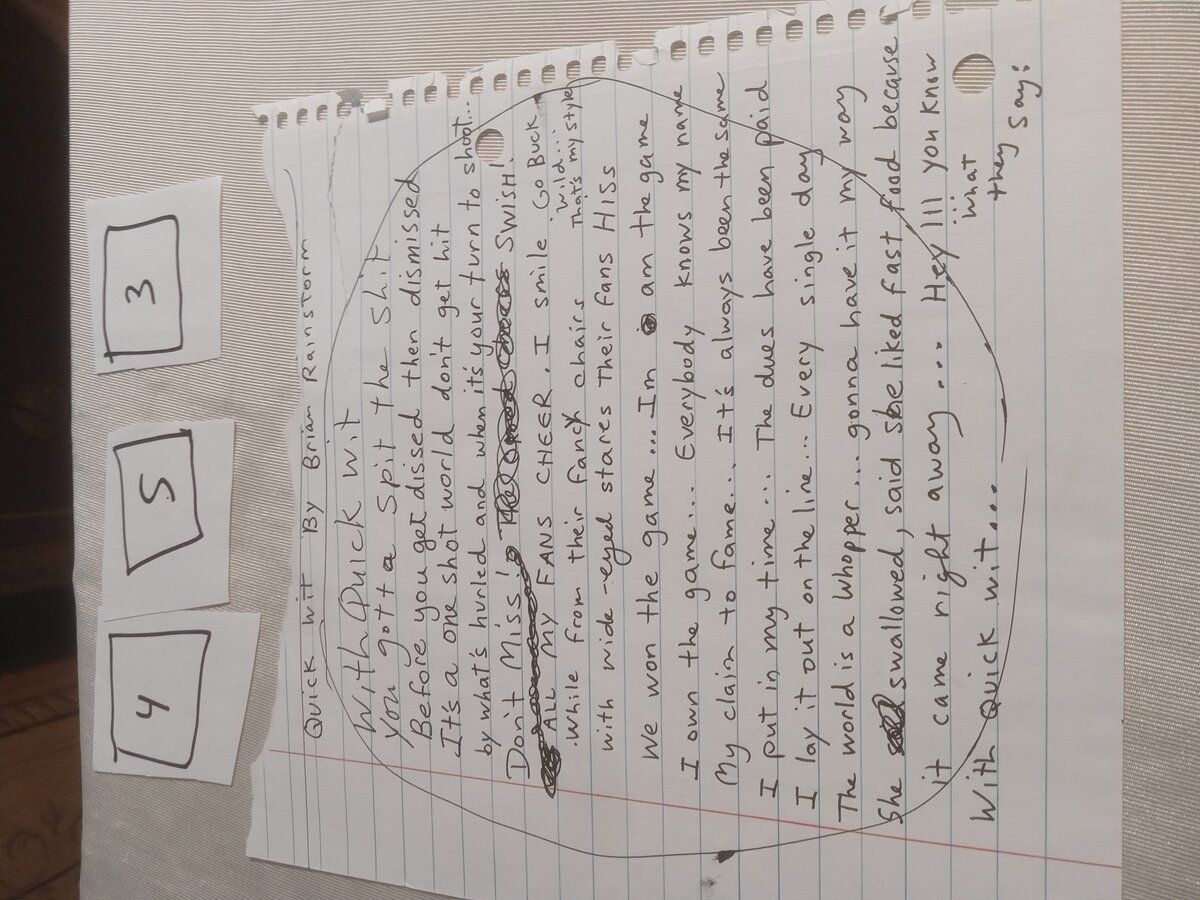 4 5 3
Quick Wit By Brian Rainstorm
With Quick wit
you gott a spit the shit
Before you get dissed then dismissed
It's a one shot world don't get hit
by what's hurled and when it's your turn to shoot...
Don't Miss! SWISH!
ALL MY FANS CHEER. I smile Go Buck
wild...
That's my style
while from their fancy chairs
with wide-eyed stares Their fans HISS
We won the game... Im am the game
I own the game... Everybody knows my name
My claim to fame... It's always been the same
I put in my time... The dues have been paid
I lay it out on the line... Every single day
The world is a whopper... gonna have it my way
She swallowed, said she liked fast food because
it came right away... Hey !!! you know
what
they
say:
With Quick wit...